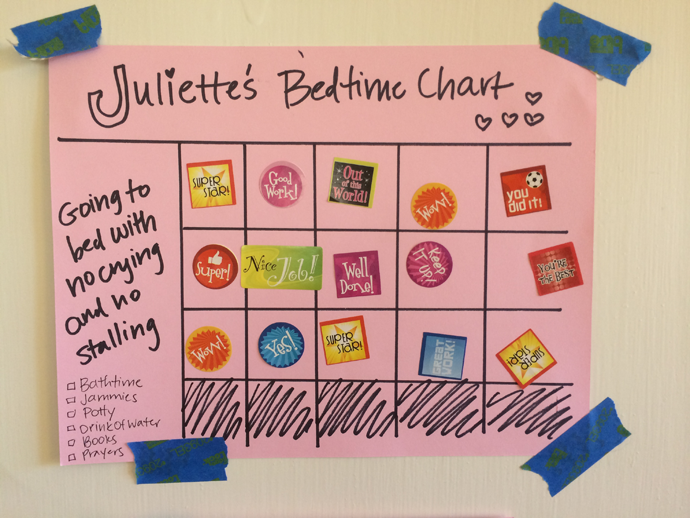 Juliette's Bedtime Chart
Going to
bed with
no crying
and no
stalling
Bathtime
Jammies
Potty
Drink of water
Books
Prayers
SUPER
STAR!
Good
Work!
Out
of this
World!
WOW!
you
did it!
Super!
Nice Job!
Well
Done!
KEEP
IT UP!
YOU'RE
THE BEST
WOW!
Yes!
SUPER
STAR!
GREAT
WORK!
SUPER
STAR!